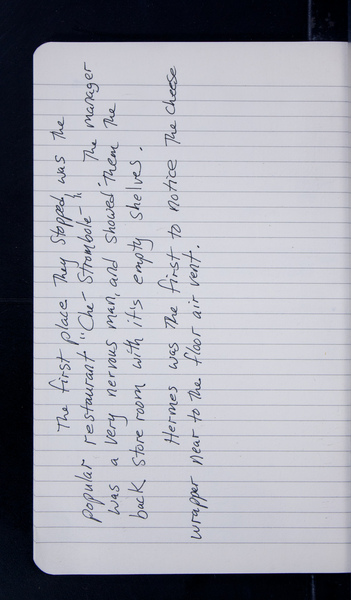 The first place they stopped was the
popular restaurant "Che- Strombole-". The manager
was a very nervous man, and showed them the
back store room with it's empty shelves.
Hermes was the first to notice the cheese
wrapper near to the floor air vent.